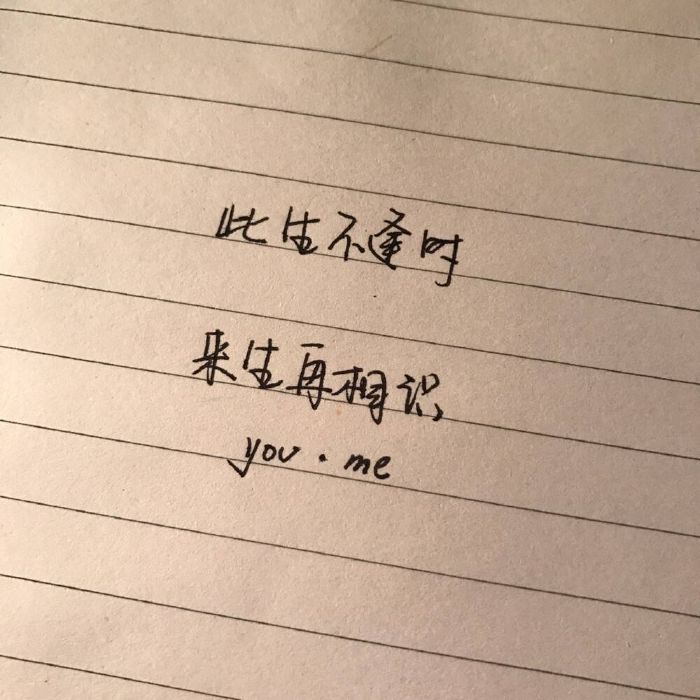 此生不逢时
来生再相识
you · me